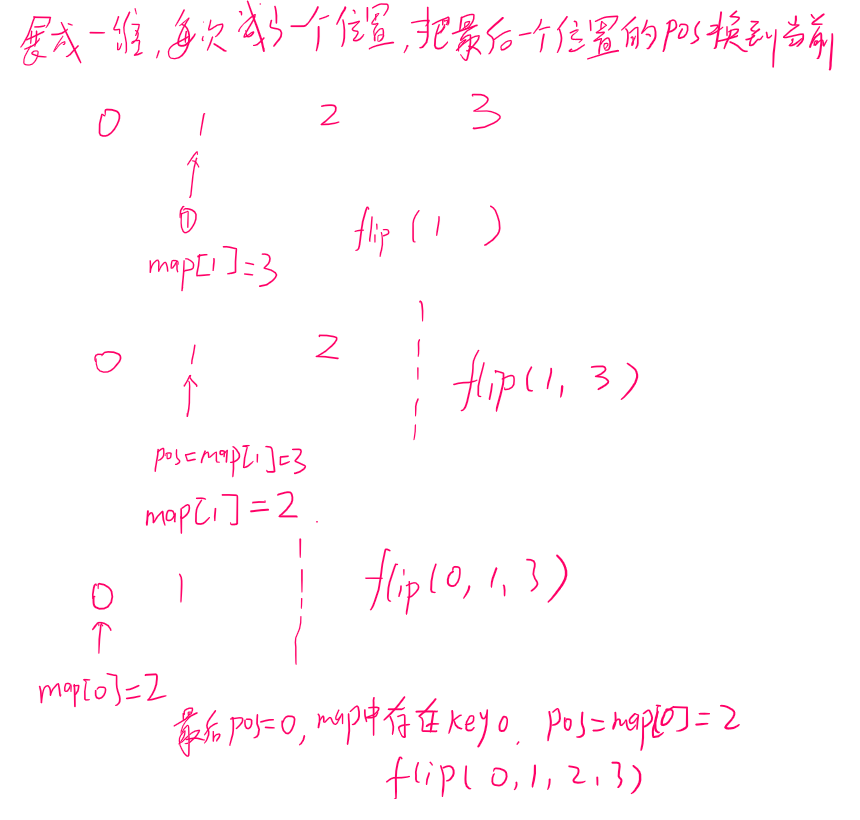 展成一维,每次减少一个位置,把最后一个位置的pos换到当前
0 1 2 3
① flip (1 )
map[1]=3
0 1 2
flip(1, 3)
pos=map[1]=3
map[1]=2.
0 1
flip(0, 1, 3)
map[0]=2
最后pos=0, map中存在key 0. pos=map[0]=2
flip( 0, 1, 2, 3)